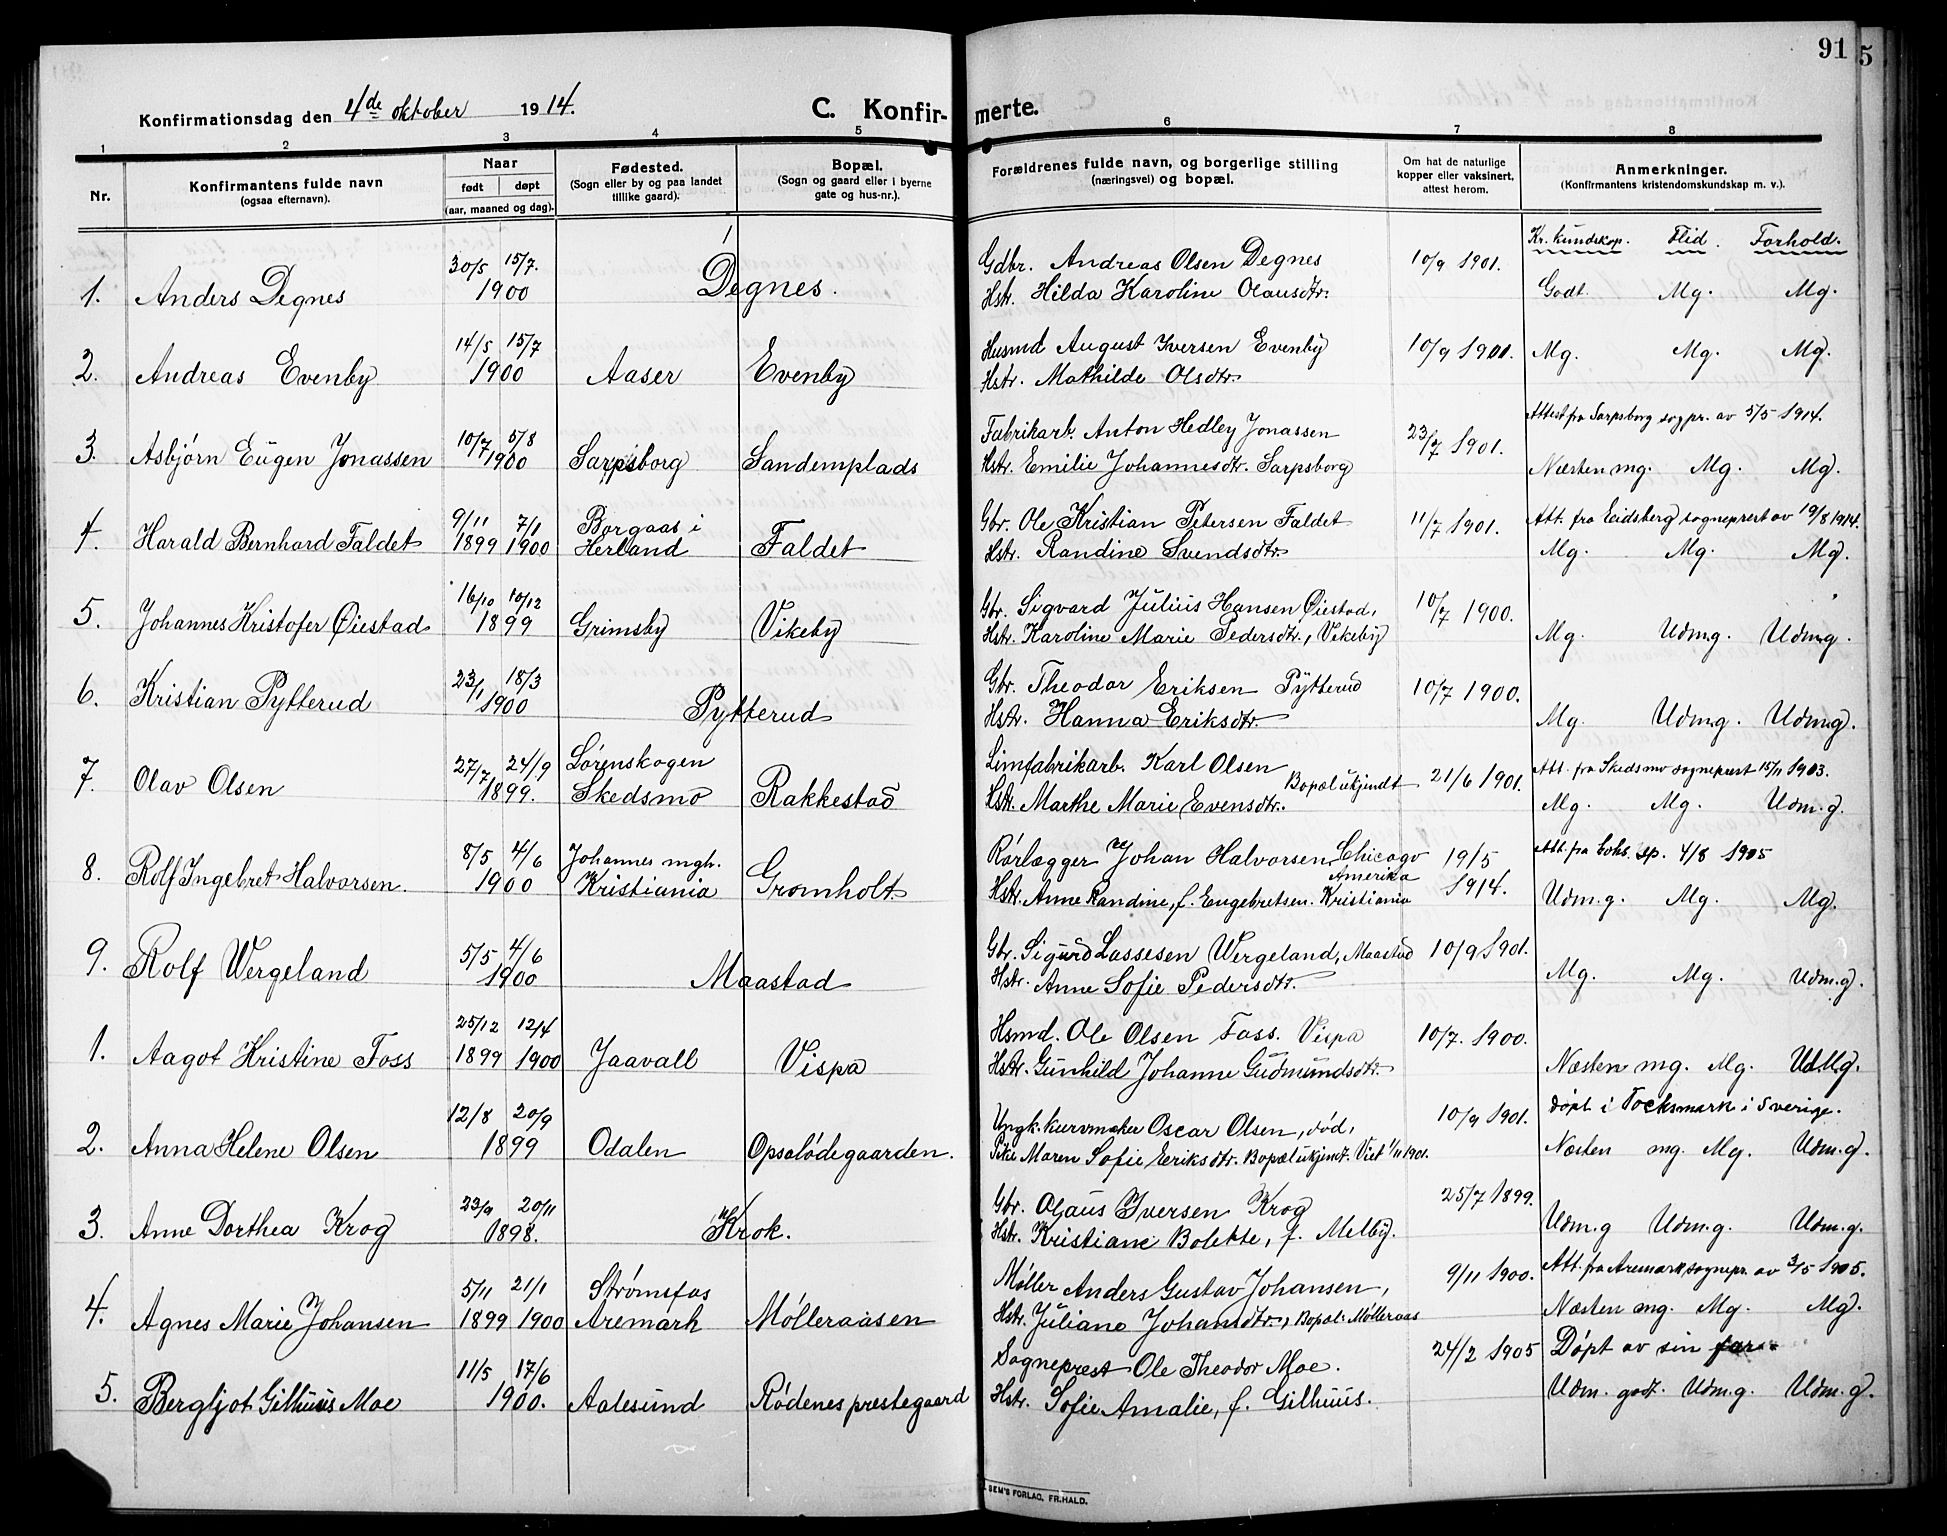 91
5
Konfirmationsdag den 4de oktober 1914.
C. Konfir-
merte.
1 2 3 4 5 6 7 8
Nr.
Konfirmantens fulde navn
(ogsaa efternavn).
Naar
født døpt
(aar, maaned og dag).
Fødested.
(Sogn eller by og paa landet
tillike gaard).
Bopæl.
(Sogn og gaard eller i byerne
gate og hus-nr.).
Forældrenes fulde navn, og borgerlige stilling
(næringsvei) og bopæl.
Om hat de naturlige
kopper eller vaksinert,
attest herom.
Anmerkninger.
(Konfirmantens kristendomskundskap m. v.).
Kr. kundskap. Flid. Forhold.
30/5 15/7. Gdbr. Andreas Olsen Degnes 10/9 1901.
1. Anders Degnes 1900 Degnes. Hstr. Hilda Karoline Olausdtr. Godt. Mg. Mg.
14/5 15/7 Husmd August Iversen Evenby 10/9 1901.
2. Andreas Evenby 1900 Aaser Evenby Hstr. Mathilde Olsdtr. Mg. Mg. Mg.
Attest fra Sarpsborg sogpr. av 5/5 1914.
10/7 5/8 Fabrikarb. Anton Hedley Jonassen 23/7 1901.
3. Asbjørn Eugen Jonassen 1900 Sarpsborg Sandemplads Hstr. Emilie Johannesdtr. Sarpsborg Næsten mg. Mg. Mg.
9/11 7/1 Borgaas i Gbr. Ole Kristian Petersen Faldet 11/7 1901. Att. fra Eidsberg sogneprest av 19/8 1914.
4. Harald Bernhard Faldet 1899 1900 Herland Faldet Hstr. Randine Svendsdtr. Mg. Mg. Mg.
16/10 10/12 Gbr. Sigvard Julius Hansen Øiestad, 10/7 1900.
5. Johannes Kristofer Øiestad 1899 Grimsby Vikeby Hstr. Karoline Marie Pedersdtr., Vikeby Mg. Udm.g. Udm.g.
23/1 18/3 Gbr. Theodor Eriksen Pytterud 10/7 1900.
6. Kristian Pytterud 1900 Pytterud Hstr. Hanna Eriksdtr. Mg. Udm.g. Udm.g.
27/7 24/9 Lørenskogen Limfabrikarb. Karl Olsen Att. fra Skedsmo sogneprest 15/11 1903.
7. Olav Olsen 1899. Skedsmo Rakkestad Hstr. Marthe Marie Evensdtr. Bopæl ukjendt 21/6 1901. Mg. Mg. Udm.g.
8/5 4/6 Johannes mgh. Rørlægger Johan Halvorsen, Chicago Amerika 19/5 Att. fra sp. 4/8 1905
8. Rolf Ingebret Halvorsen. 1900 Kristiania Gromholt Hstr. Anne Randine, f. Engebretsen. Kristiania 1914. Udm.g. Mg. Mg.
5/5 4/6 Gbr. Sigurd Lassesen Wergeland, Maastad 10/9 1901.
9. Rolf Wergeland 1900 Maastad Hstr. Anne Sofie Pedersdtr. Mg. Mg. Udm.g.
25/12 12/4 Hsmd. Ole Olsen Foss. Vispa 10/7. 1900.
1. Aagot Kristine Foss 1899 1900 Jaavall Vispa Hstr. Gunhild Johanne Gudmundsdtr. Næsten mg. Mg. Ud.Mg.
12/8 20/9 Ungk. kurvmaker Oscar Olsen, død, 10/9 1901. Døpt i Tocksmark i Sverige.
2. Anna Helene Olsen 1899 Odalen Opsalødegaarden. Pike Maren Sofie Eriksdtr. Bopæl ukjendt. Viet 1/11 1901. Næsten mg. Mg. Udm.g.
23/9 20/11 Gbr. Olaus Iversen Krog 25/7 1899.
3. Anne Dorthea Krog 1898. Krok. Hstr. Kristiane Bolette, f. Melby. Udm.g Udm.g. Udm.g.
5/11 21/1 Strømsfos Møller Anders Gustav Johansen, 9/11 1900. Att. fra Aremark sognepr. av 3/5 1905.
4. Agnes Marie Johansen 1899 1900 Aremark Mølleraasen Hstr. Juliane Johansdtr., Bopæl: Mølleraas Næsten mg. Mg. Mg.
11/5 17/6 Sogneprest Ole Theodor Moe. 24/2 1905 Døpt av sin far.
5. Bergljot Gilhuus Moe 1900. Aalesund Rødenes prestegaard Hstr. Sofie Amalie, f. Gilhuus. Udm. godt. Udm.g. Udm.g.
SEM'S FORLAG, FR.HALD.